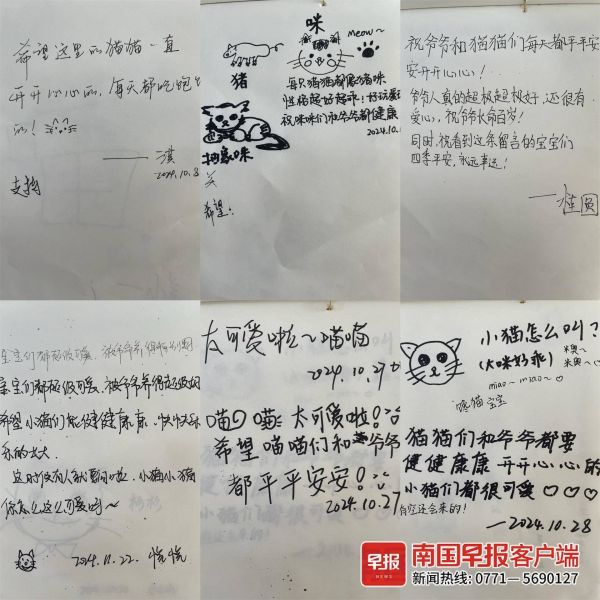 希望这里的猫猫一直
开开心心的，每天都吃饱
的！
——淇
2024.10.8
支持
咪
meow~
猪
每只猫猫都像猪咪
性格超好超乖！好玩爱
祝咪咪们和爷爷都健康
2024.10.
希望：
祝爷爷和猫猫们每天都平平安
安开开心心！
爷爷人真的超极超极好，还很有
爱心，祝爷爷长命百岁！
同时，祝看到这条留言的宝宝们
四季平安，永远幸运！
——桂圆
宝宝们都极很可爱，被爷爷养得
宝宝们都极很可爱，被爷爷养得超级好
希望小猫们能健健康康、快快乐
乐的长大
小猫小猫
你怎么这么可爱呀~
2024.10.22. 悦悦
太可爱啦~喵喵
2024.10.27
喵喵 太可爱啦！
希望喵喵们和爷爷
都平平安安！
2024.10.27
小猫怎么叫？
（大咪好乖）
米奥~
米奥~
miao~ miao~
喵猫宝宝
猫猫们和爷爷都要
健健康康 开开心心的
小猫们都很可爱♡♡♡
有空还会来的！
—2024.10.28
早报
NEWS
南国早报客户端
新闻热线：0771—5690127